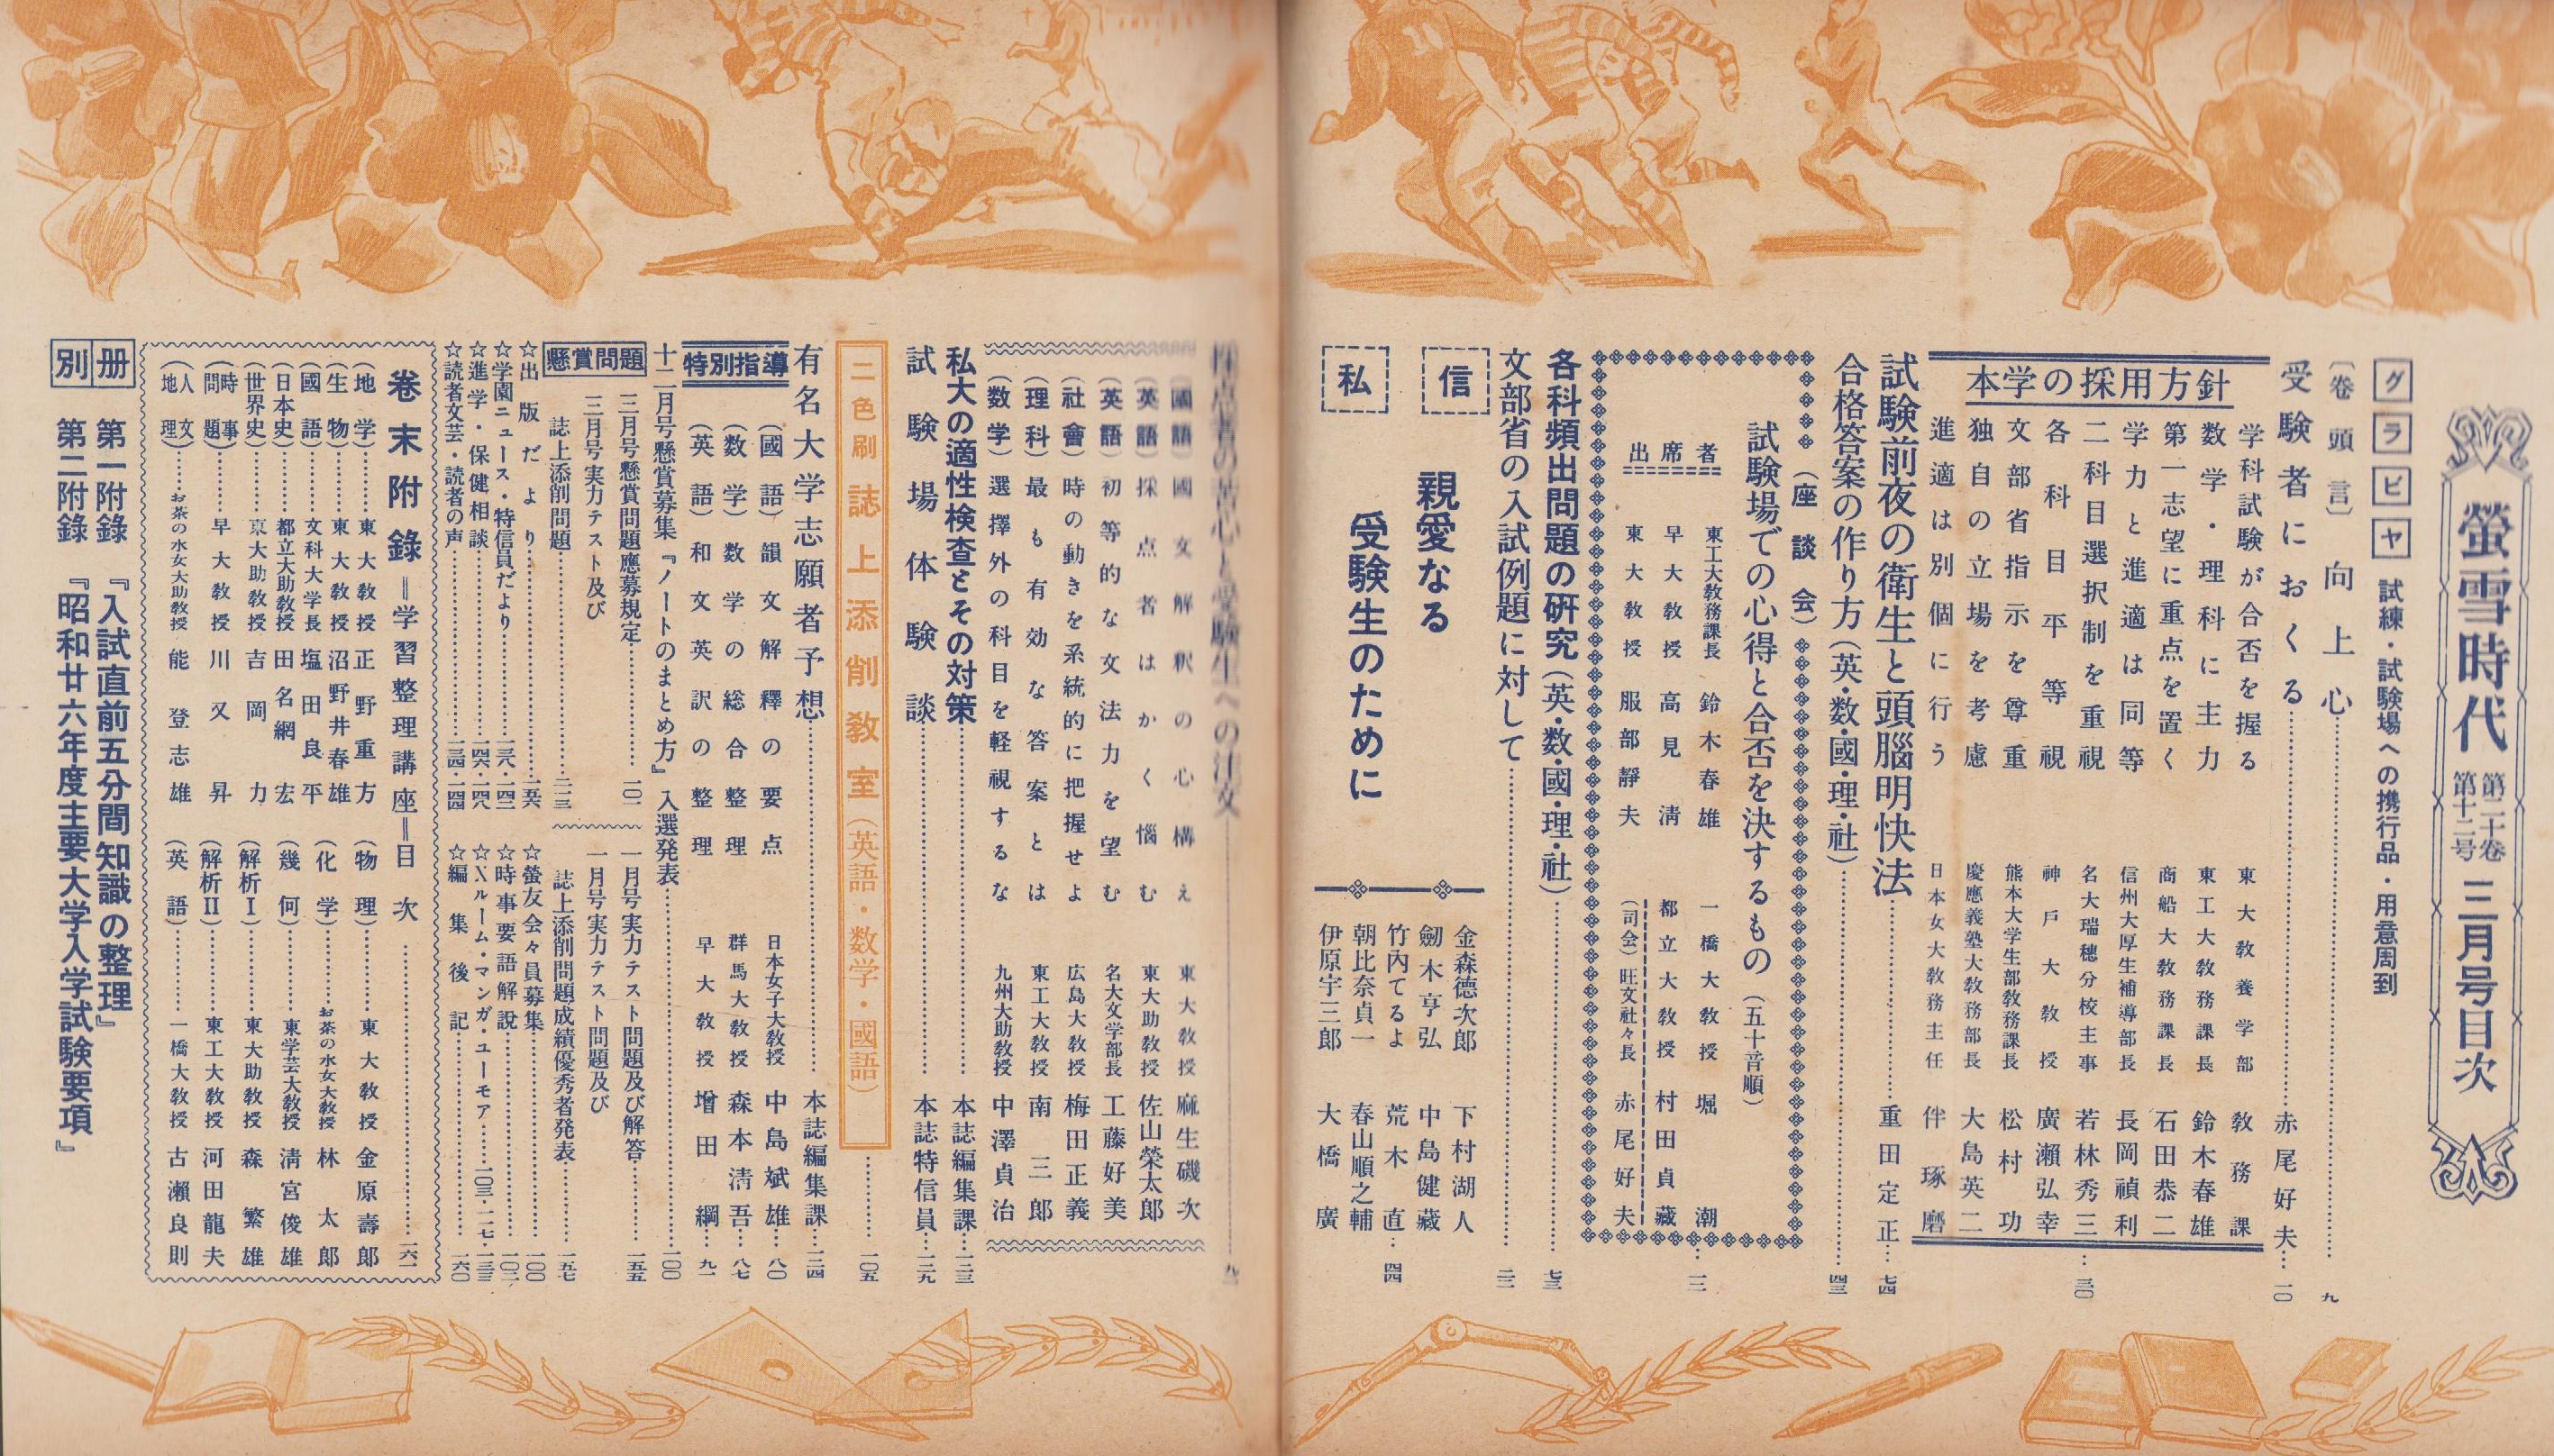 螢雪時代 第二十巻 第十二号 三月号目次
グラビヤ 試練・試験場への携行品・用意周到
(巻頭言) 向上心…………九
受験者におくる…………赤尾好夫…一〇
本学の採用方針
学科試験が合否を握る 東大教養学部 教務課
数学・理科に主力 東工大教務課長 鈴木春雄
第一志望に重点を置く 商船大教務課長 石田恭二
学力と進適は同等 信州大厚生補導部長 長岡禎利
二科目選択制を重視 名大瑞穂分校主事 若林秀三…三〇
各科目平等視 神戸大教授 廣瀬弘幸
文部省指示を尊重 熊本大学生部教務課長 松村功
独自の立場を考慮 慶應義塾大教務部長 大島英二
進適は別個に行う 日本女大教務主任 伴琢磨
試験前夜の衛生と頭腦明快法…………重田定正…七四
合格答案の作り方(英・数・國・理・社)…………四三
(座談会)
試験場での心得と合否を決するもの(五十音順)
出席者
東工大教務課長 鈴木春雄
早大教授 高見淸
東大教授 服部靜夫
一橋大教授 堀潮…一二
都立大教授 村田貞藏
(司会)旺文社々長 赤尾好夫
各科頻出問題の硏究(英・数・國・理・社)…………七三
文部省の入試例題に対して…………三二
私信
親愛なる
受験生のために
金森德次郎 下村湖人
劒木亨弘 中島健藏
竹内てるよ 荒木直…四四
朝比奈貞一 春山順之輔
伊原宇三郎 大橋廣
採点者の苦心と受験生への注文
(國語)國文解釈の心構え 東大教授 麻生磯次
(英語)採点者はかく惱む 東大助教授 佐山榮太郎
(英語)初等的な文法力を望む 名大文学部長 工藤好美
(社會)時の動きを系統的に把握せよ 広島大教授 梅田正義
(理科)最も有効な答案とは 東工大教授 南三郎
(数学)選擇外の科目を軽視するな 九州大助教授 中澤貞治
私大の適性検査とその対策…………本誌編集課…一二三
試験場体験談…………本誌特信員…一二九
二色刷 誌上添削教室(英語・数学・國語)…………一〇五
有名大学志願者予想…………本誌編集課…一二四
特別指導
(國語)韻文解釋の要点 日本女子大教授 中島斌雄…八〇
(数学)数学の総合整理 群馬大教授 森本淸吾…八七
(英語)和文英訳の整理 早大教授 増田綱…九一
十二月号懸賞募集『ノートのまとめ方』入選発表…………一〇〇
懸賞問題
三月号懸賞問題應募規定…………一〇二
三月号実力テスト及び
誌上添削問題…………一一三
一月号実力テスト問題及び解答…………一五五
一月号実力テスト問題及び
誌上添削問題成績優秀者発表…………一五七
☆出版だより…………一五六
☆学園ニュース・特信員だより…………一三八・一四二
☆進学・保健相談…………一四六・一四八
☆読者文芸・読者の声…………一三四・一四四
☆螢友会々員募集…………一〇〇
☆時事要語解説…………一〇二
☆Xルーム・マンガ・ユーモア……一〇三・一一七・一三三
☆編集後記…………一六〇
巻末附錄=学習整理講座=目次…………一六一
(地学)………東大教授 正野重方
(生物)………東大教授 沼野井春雄
(國語)………文科大学長 塩田良平
(日本史)………都立大助教授 田名網宏
(世界史)………東大助教授 吉岡力
(時事問題)………早大教授 川又昇
(人文地理)………お茶の水女大助教授 能登志雄
(物理)………東大教授 金原壽郎
(化学)………お茶の水女大教授 林太郎
(幾何)………東学芸大教授 淸宮俊雄
(解析Ⅰ)………東大助教授 森繁雄
(解析Ⅱ)………東工大教授 河田龍夫
(英語)………一橋大教授 古瀬良則
別册
第一附錄『入試直前五分間知識の整理』
第二附錄『昭和廿六年度主要大学入学試験要項』